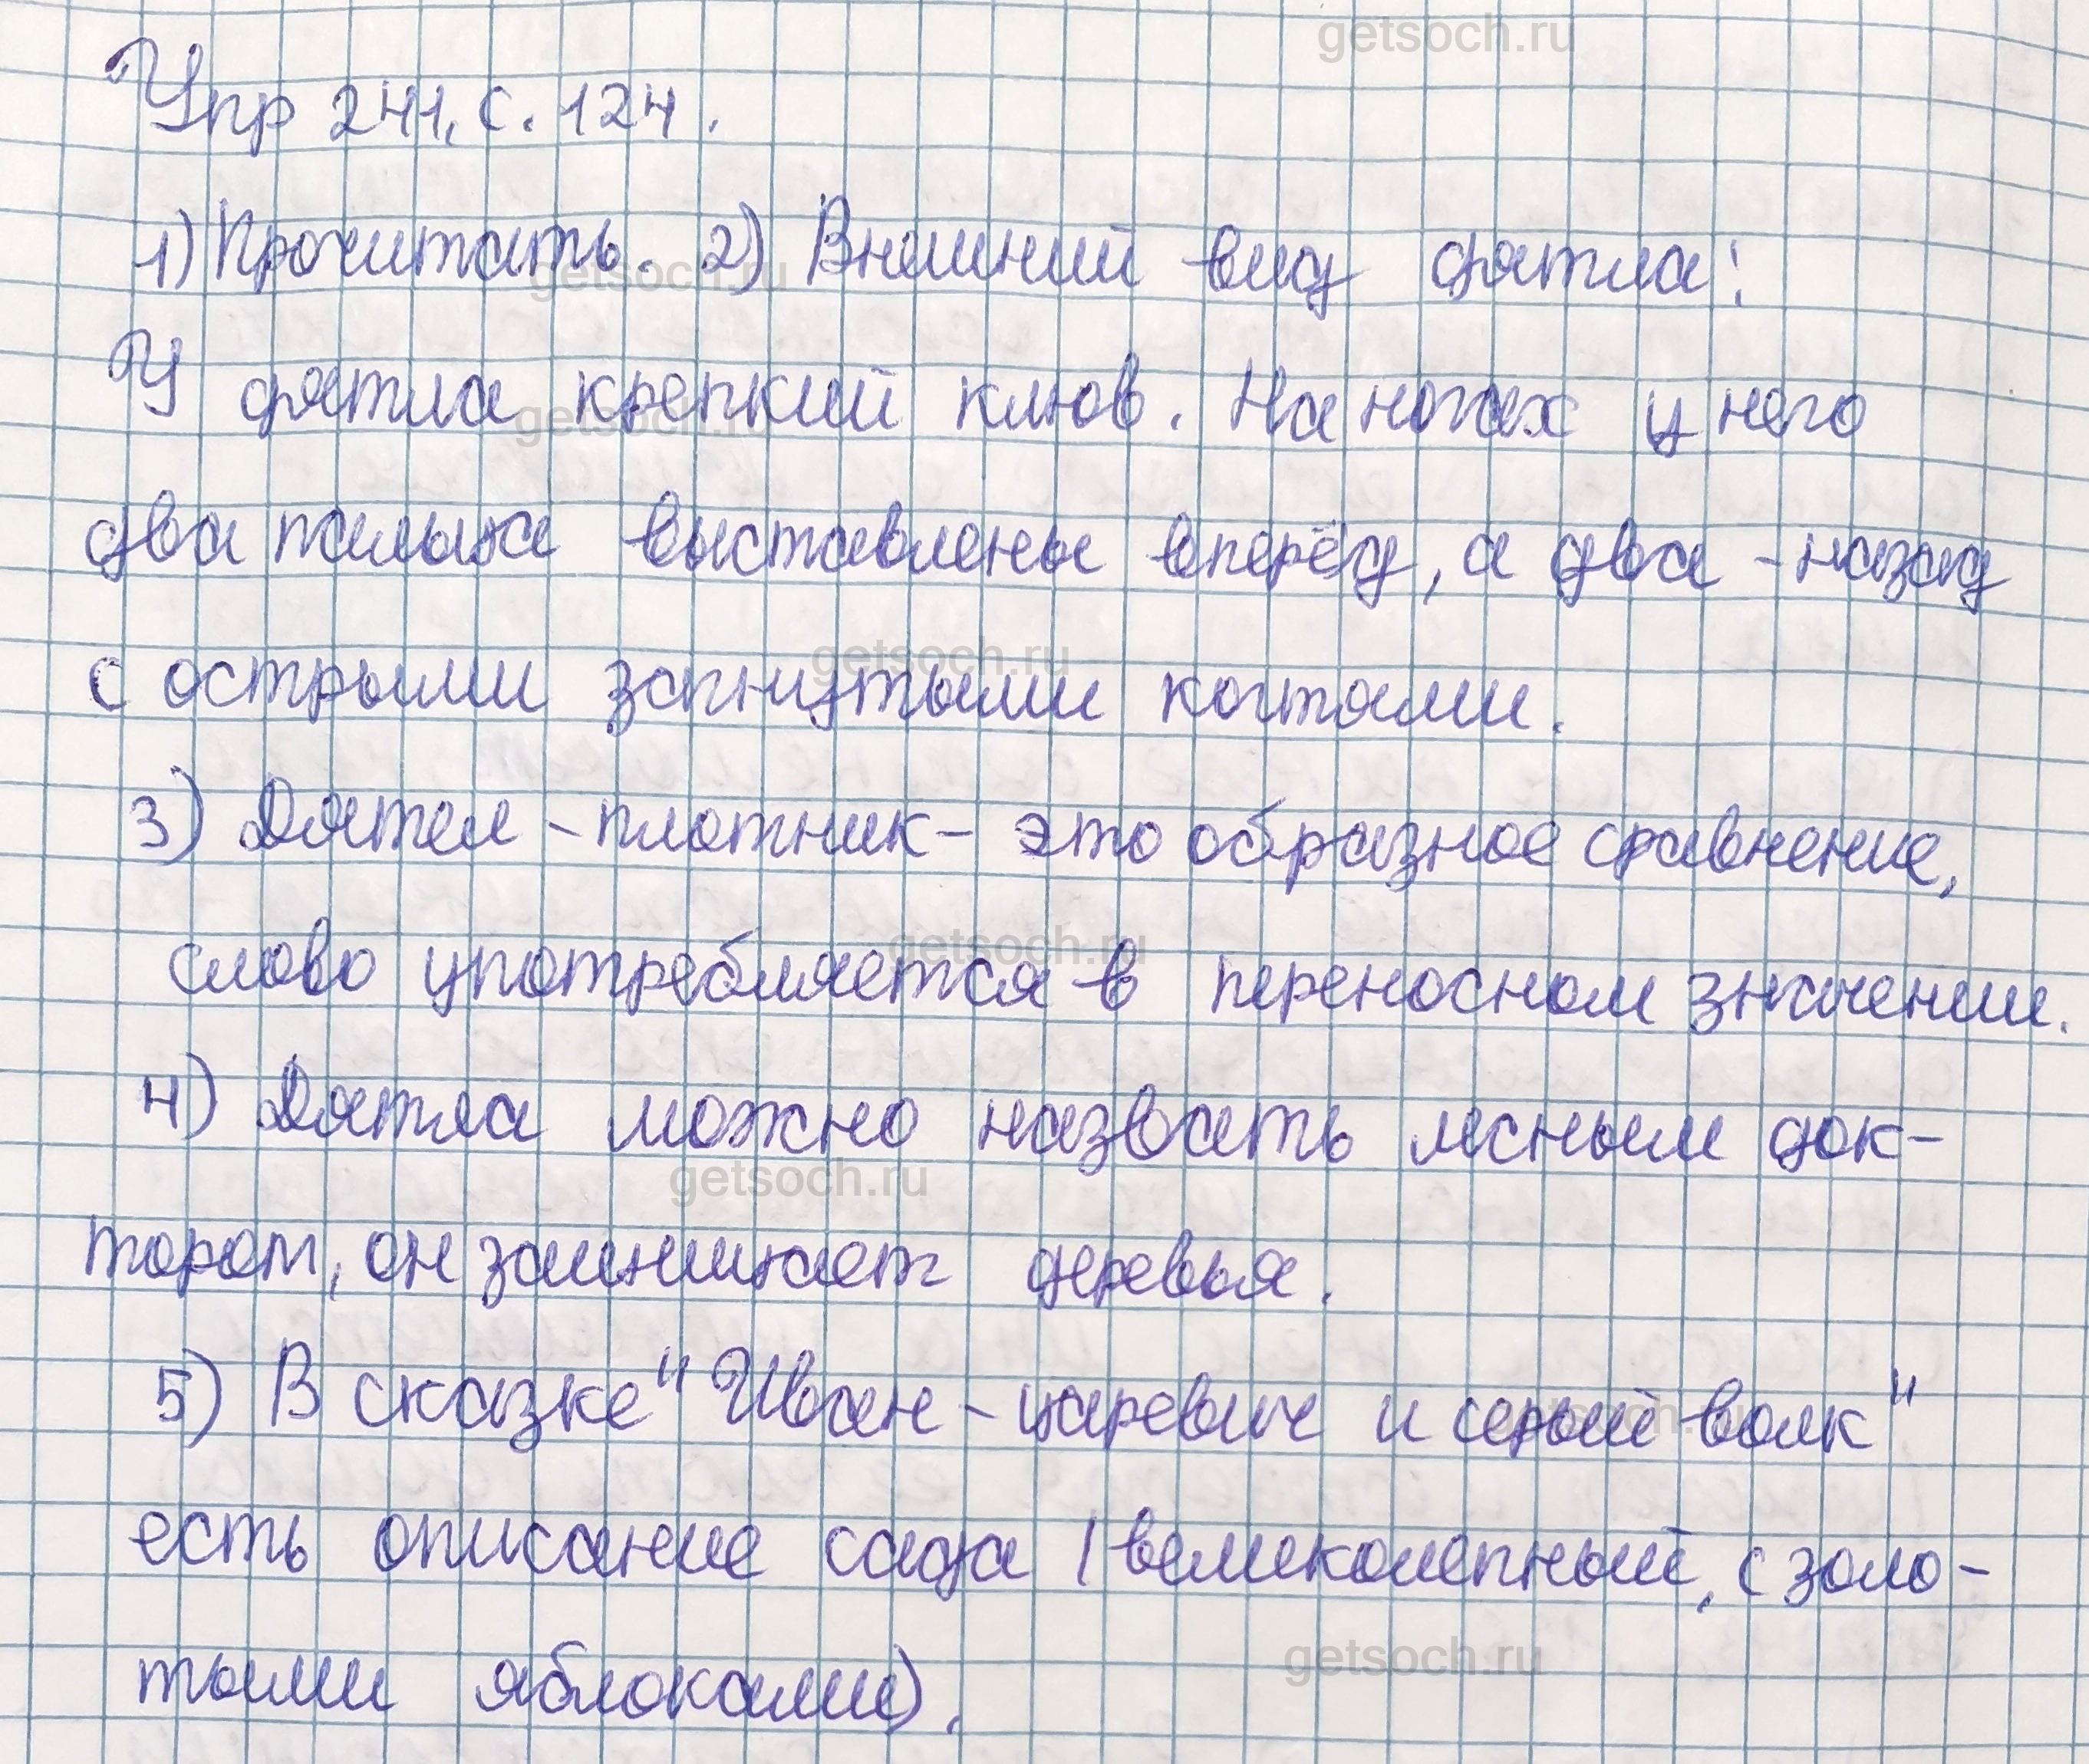 getsoch.ru
Упр 241, с. 124.
1) Прочитать. 2) Внешний вид дятла:
getsoch.ru
У дятла крепкий клюв. На ногах у него
getsoch.ru
два пальца выставлены вперёд, а два - назад
с острыми загнутыми когтями.
getsoch.ru
3) Дятел - плотник - это образное сравнение,
слово употребляется в переносном значении.
getsoch.ru
4) Дятла можно назвать лесным док-
getsoch.ru
тором, он заменяет деревья.
5) В сказке "Иван - царевич и серый волк"
getsoch.ru
есть описание сада (великолепный, с золо-
тыми яблоками).
getsoch.ru